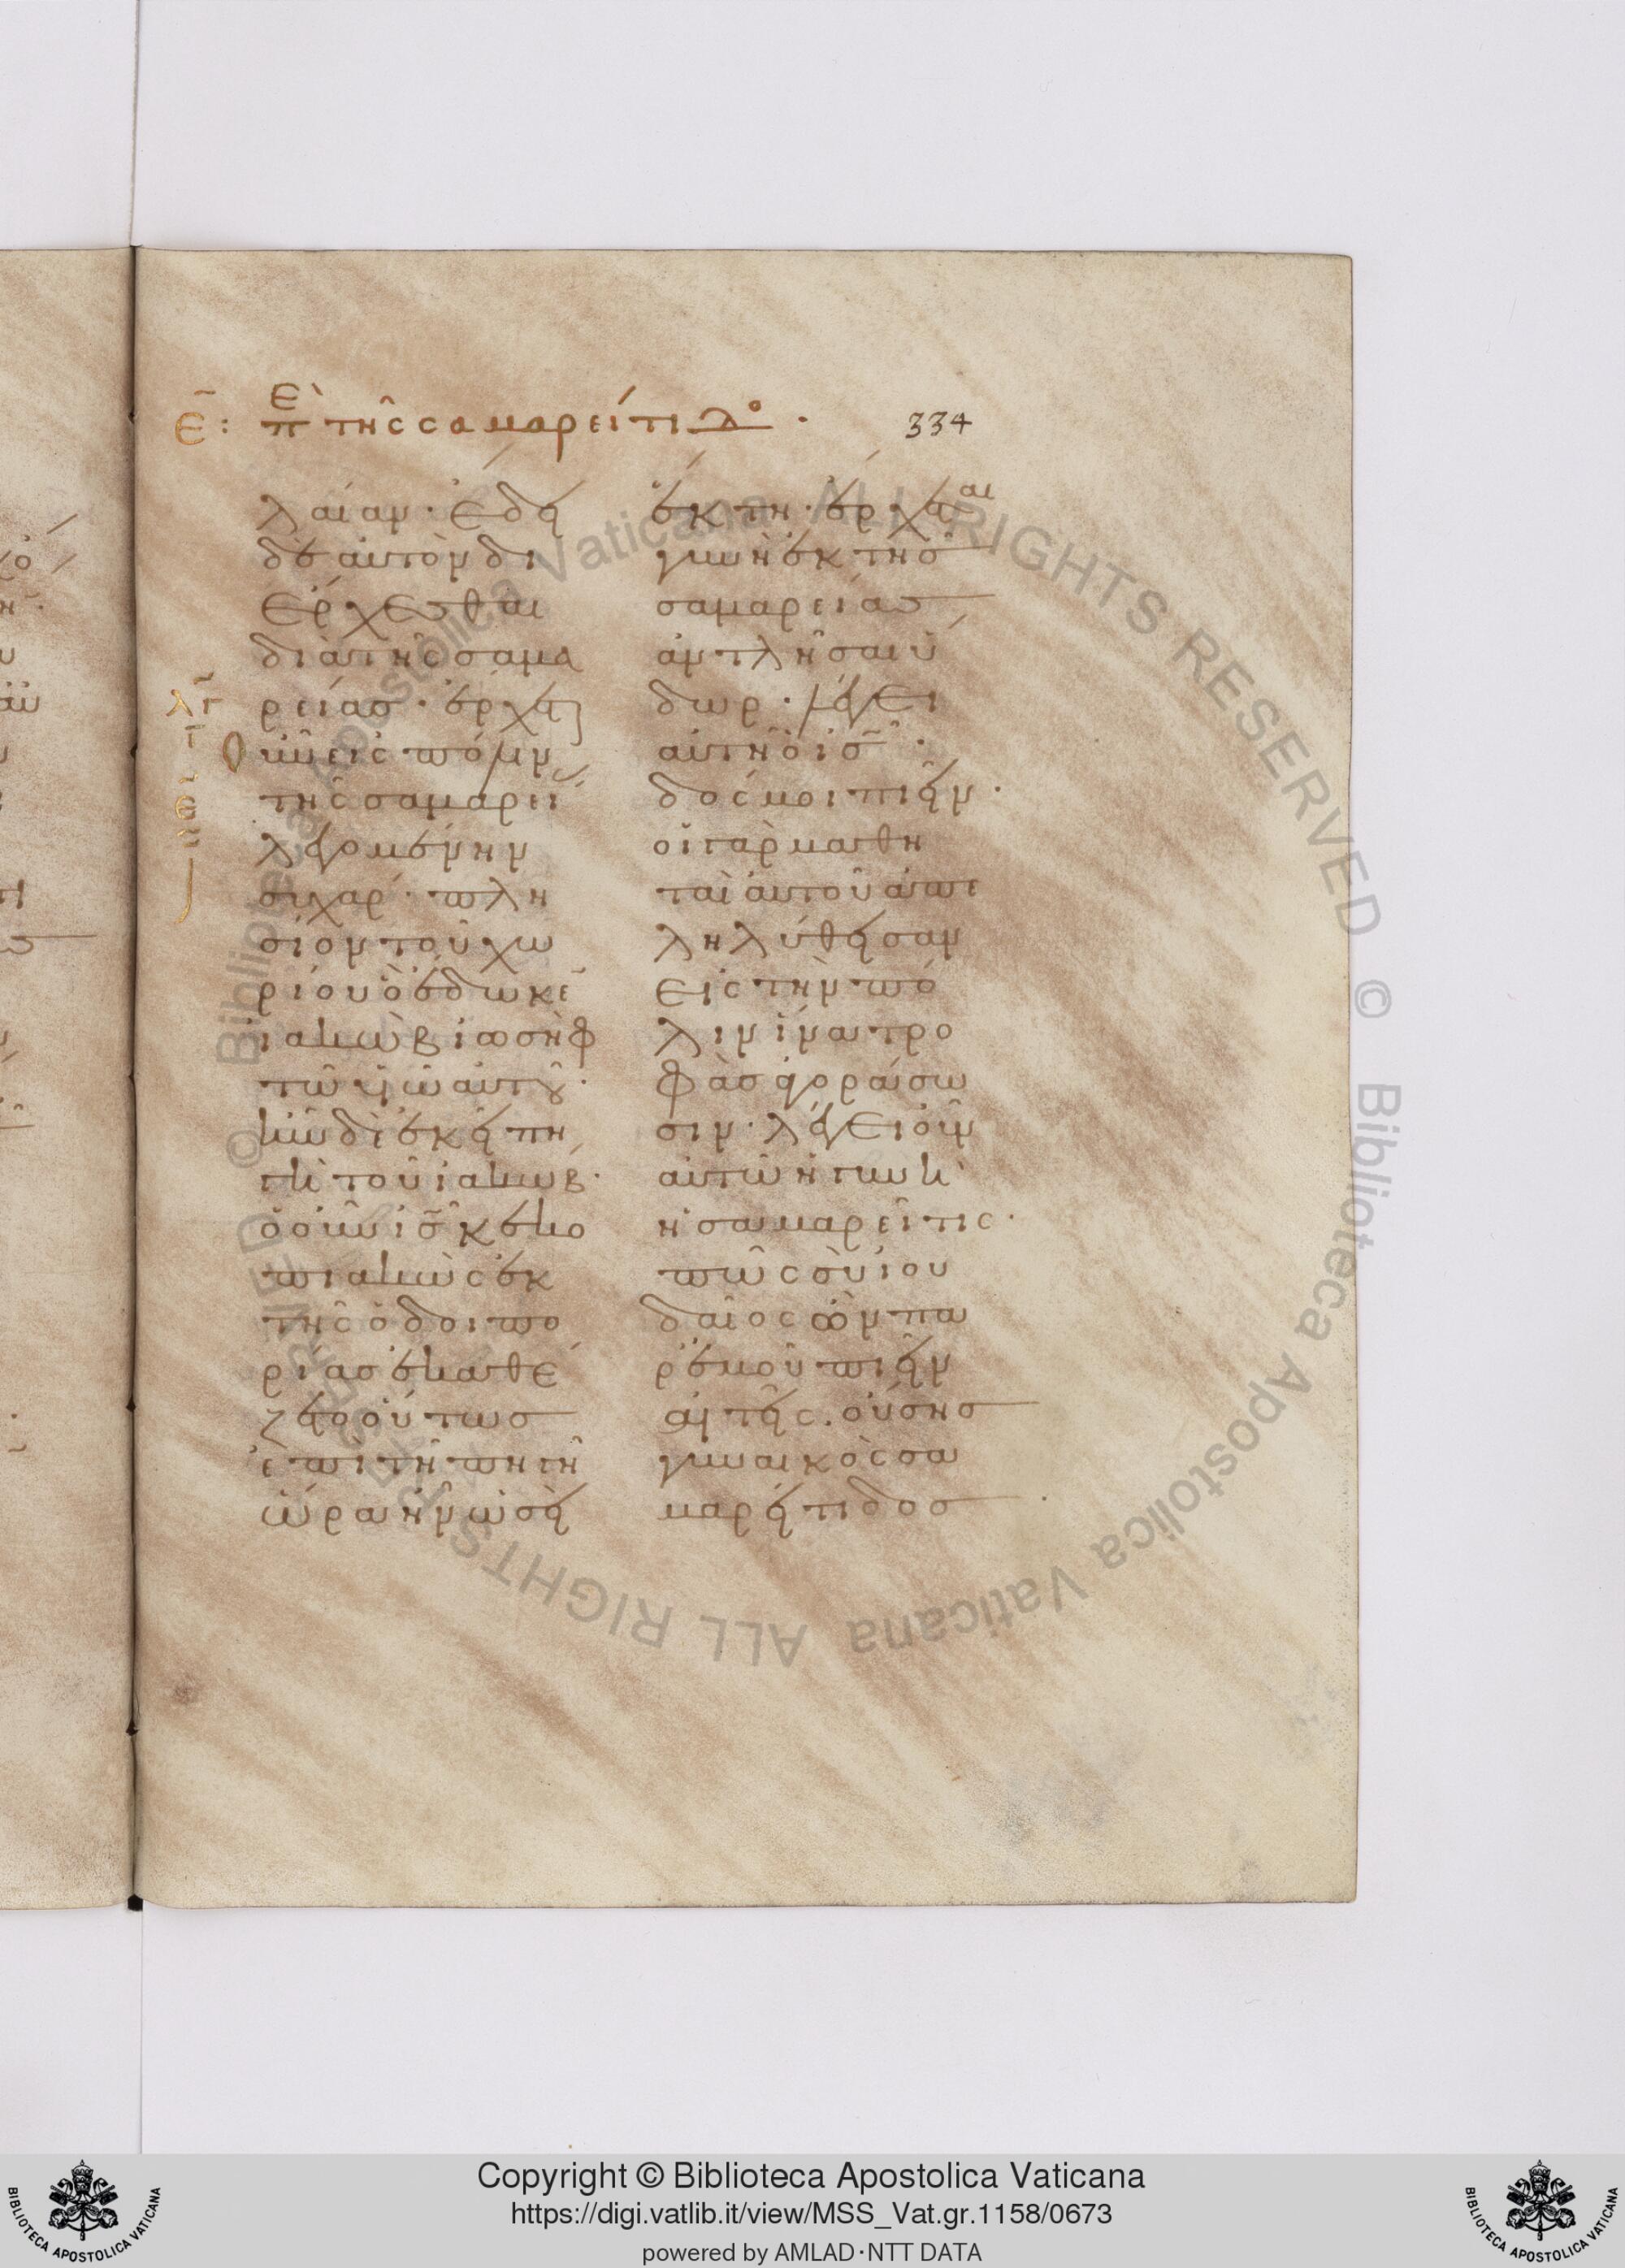 ε̃: πὲ τῆς σαμαρείτιδο.
334
λαίαν· ἔδει
δὲ αὐτὸν δι
έρχεσθαι
διὰ τῆς σαμα
ρείας· ἔρχεται
οὖν εἰς πόλιν
τῆς σαμαρεί
λεγομένην
σιχάρ· πλη
σίον τοῦ χω
ρίου ὃ ἔδωκε̃
ἰακὼβ ἰωσὴφ
τῶ υἱῶ αὐτοῦ·
ἦν δὲ ἐκεῖ πη
γὴ τοῦ ἰακώβ·
ὁ οὖν ισ̃ κεκο
πιακὼς ἐκ
τῆς ὁδοιπο
ρίας ἐκαθέ
ζετο οὕτως
ἐπὶ τῆ πηγῆ
ὥρα ἦν ὡσεὶ
ἕκτη· ἔρχεται
γυνὴ ἐκ τῆς
σαμαρείας
ἀντλῆσαι ὕ
δωρ· λέγει
αὐτῆ ὁ ισ̃·
δός μοι πιεῖν·
οἱ γὰρ μαθη
ταὶ αὐτοῦ ἀπε
ληλύθεισαν
εἰς τὴν πό
λιν ἵνα τρο
φὰς ἀγοράσω
σιν· λέγει οὖν
αὐτῶ ἡ γυνὴ
ἡ σαμαρεῖτις·
πῶς σὺ ἰου
δαῖος ὢν πα
ρ' ἐμοῦ πιεῖν
αἰτεῖς. οὔσης
γυναικὸς σα
μαρείτιδος·
Copyright © Biblioteca Apostolica Vaticana
https://digi.vatlib.it/view/MSS_Vat.gr.1158/0673
powered by AMLAD·NTT DATA
BIBLIOTECA APOSTOLICA VATICANA
BIBLIOTECA APOSTOLICA VATICANA
© Biblioteca Apostolica Vaticana ALL RIGHTS RESERVED © Biblioteca Apostolica Vaticana ALL RIGHTS RESERVED